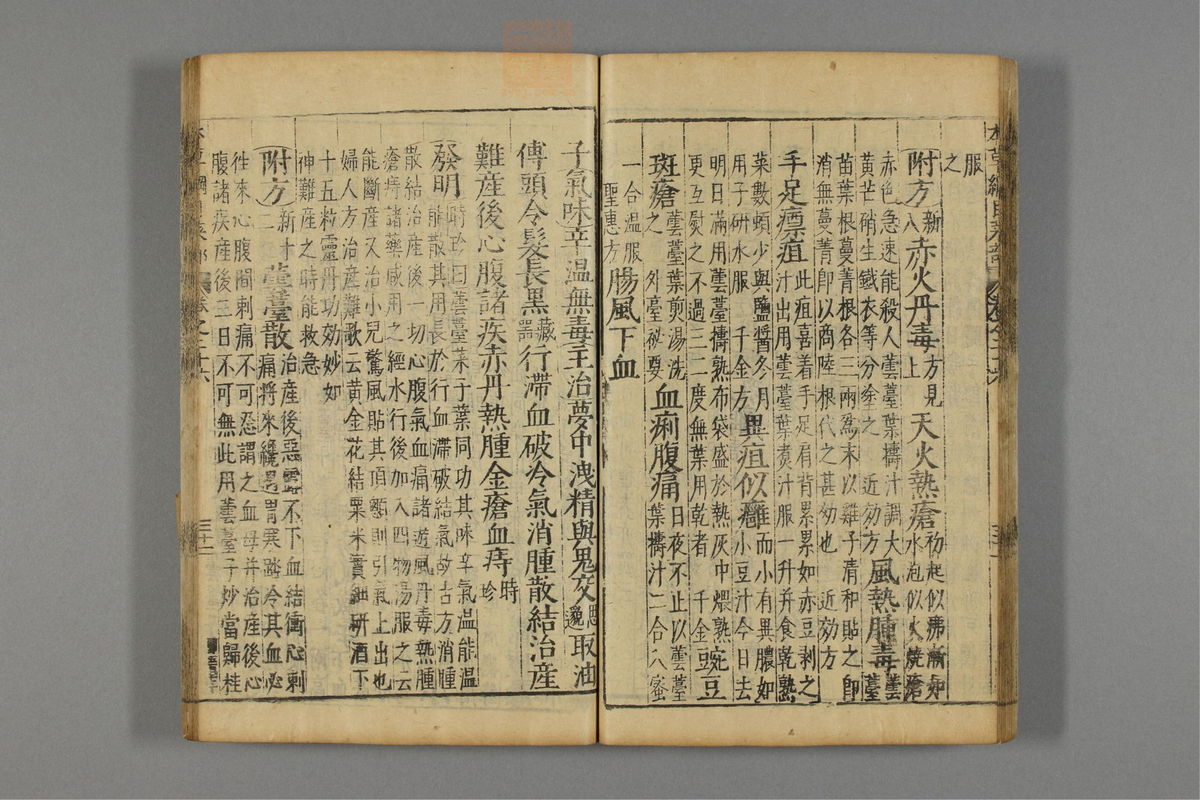 服
之
附方新八赤火丹毒方見上天火熱瘡初起似痱漸如水泡似火燒瘡
赤色急速能殺人蕓薹葉擣汁調大
黃芒硝生鐵衣等分塗之 近効方風熱腫毒蕓薹
苗葉根蔓菁根各三兩爲末以雞子清和貼之即
消無蔓菁即以商陸根代之甚効也 近効方
手足瘭疽此疽喜着手足肩背累累如赤豆剥之
汁出用蕓薹葉煑汁服一升并食乾熟
菜數頓少與鹽醬冬月
用子研水服 千金方異疽似癰而小有異膿如小豆汁今日去
明日滿用蕓薹擣熟布袋盛於熱灰中煨熟
更互熨之不過三二度無葉用乾者 千金豌豆
斑瘡蕓薹葉煎湯洗之 外臺秘要血痢腹痛日夜不止以蕓薹葉擣汁二合入蜜
一合溫服
聖惠方腸風下血
子氣味辛温無毒主治夢中洩精與鬼交思邈取油
傅頭令髮長黑藏器行滯血破冷氣消腫散結治産
難産後心腹諸疾赤丹熱腫金瘡血痔時珍
發明時珍曰蕓薹菜子葉同功其味辛氣温能温
能散其用長於行血滯破結氣故古方消腫
散結治産後一切心腹氣血痛諸遊風丹毒熱腫
瘡痔諸藥咸用之經水行後加入四物湯服之云
能斷産又治小兒驚風貼其頂顖則引氣上出也
婦人方治産難歌云黄金花結粟米實細研酒下
十五粒靈丹功効妙如
神難産之時能救急
附方新十二蕓薹散治産後惡露不下血結衝心刺
痛將來纔遇冒寒踏冷其血必
徃來心腹間刺痛不可忍謂之血母并治産後心
腹諸疾産後三日不可無此用蕓薹子炒當歸桂